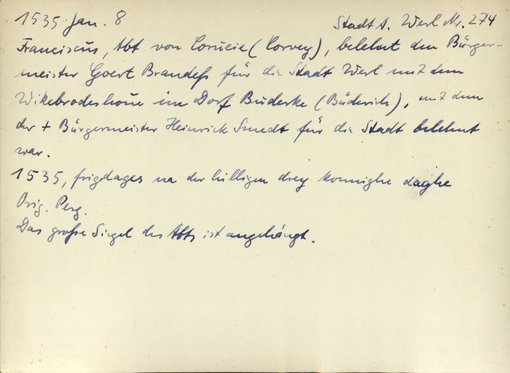 1535 Jan. 8 Stadt A. Werl Nr. 274
Franciscus, Abt von Corueie (Corvey), belehnt den Bürger-
meister Goert Brandeß für die Stadt Werl mit dem
Wikebrodeshoue im Dorf Buderke (Büderich), mit dem
der + Bürgermeister Heinrick Smedt für die Stadt belehnt
war.
1535, frigdages na der hilligen drey konnighe daghe
Orig. Perg.
Das große Siegel des Abts ist angehängt.